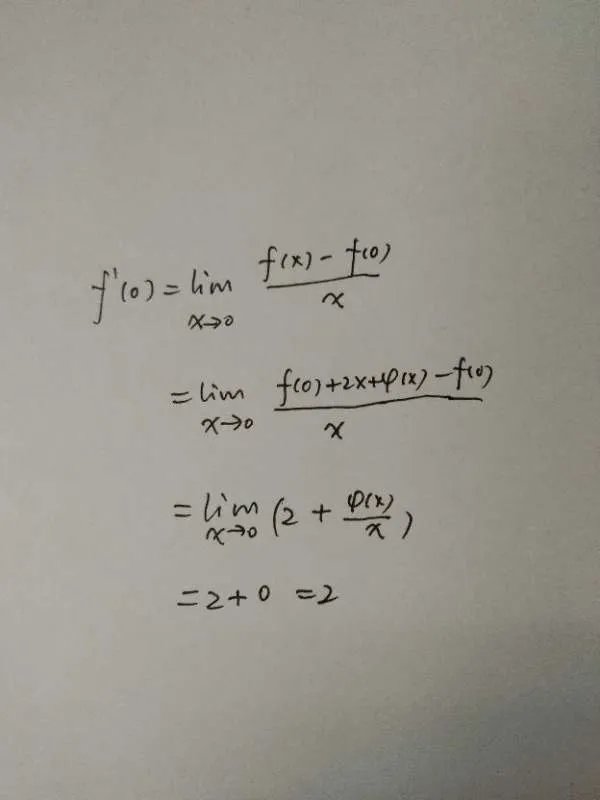 f'(0) = lim_{x→0} \frac{f(x) - f(0)}{x}
= lim_{x→0} \frac{f(0)+2x+φ(x) - f(0)}{x}
= lim_{x→0} (2 + \frac{φ(x)}{x})
= 2 + 0 = 2